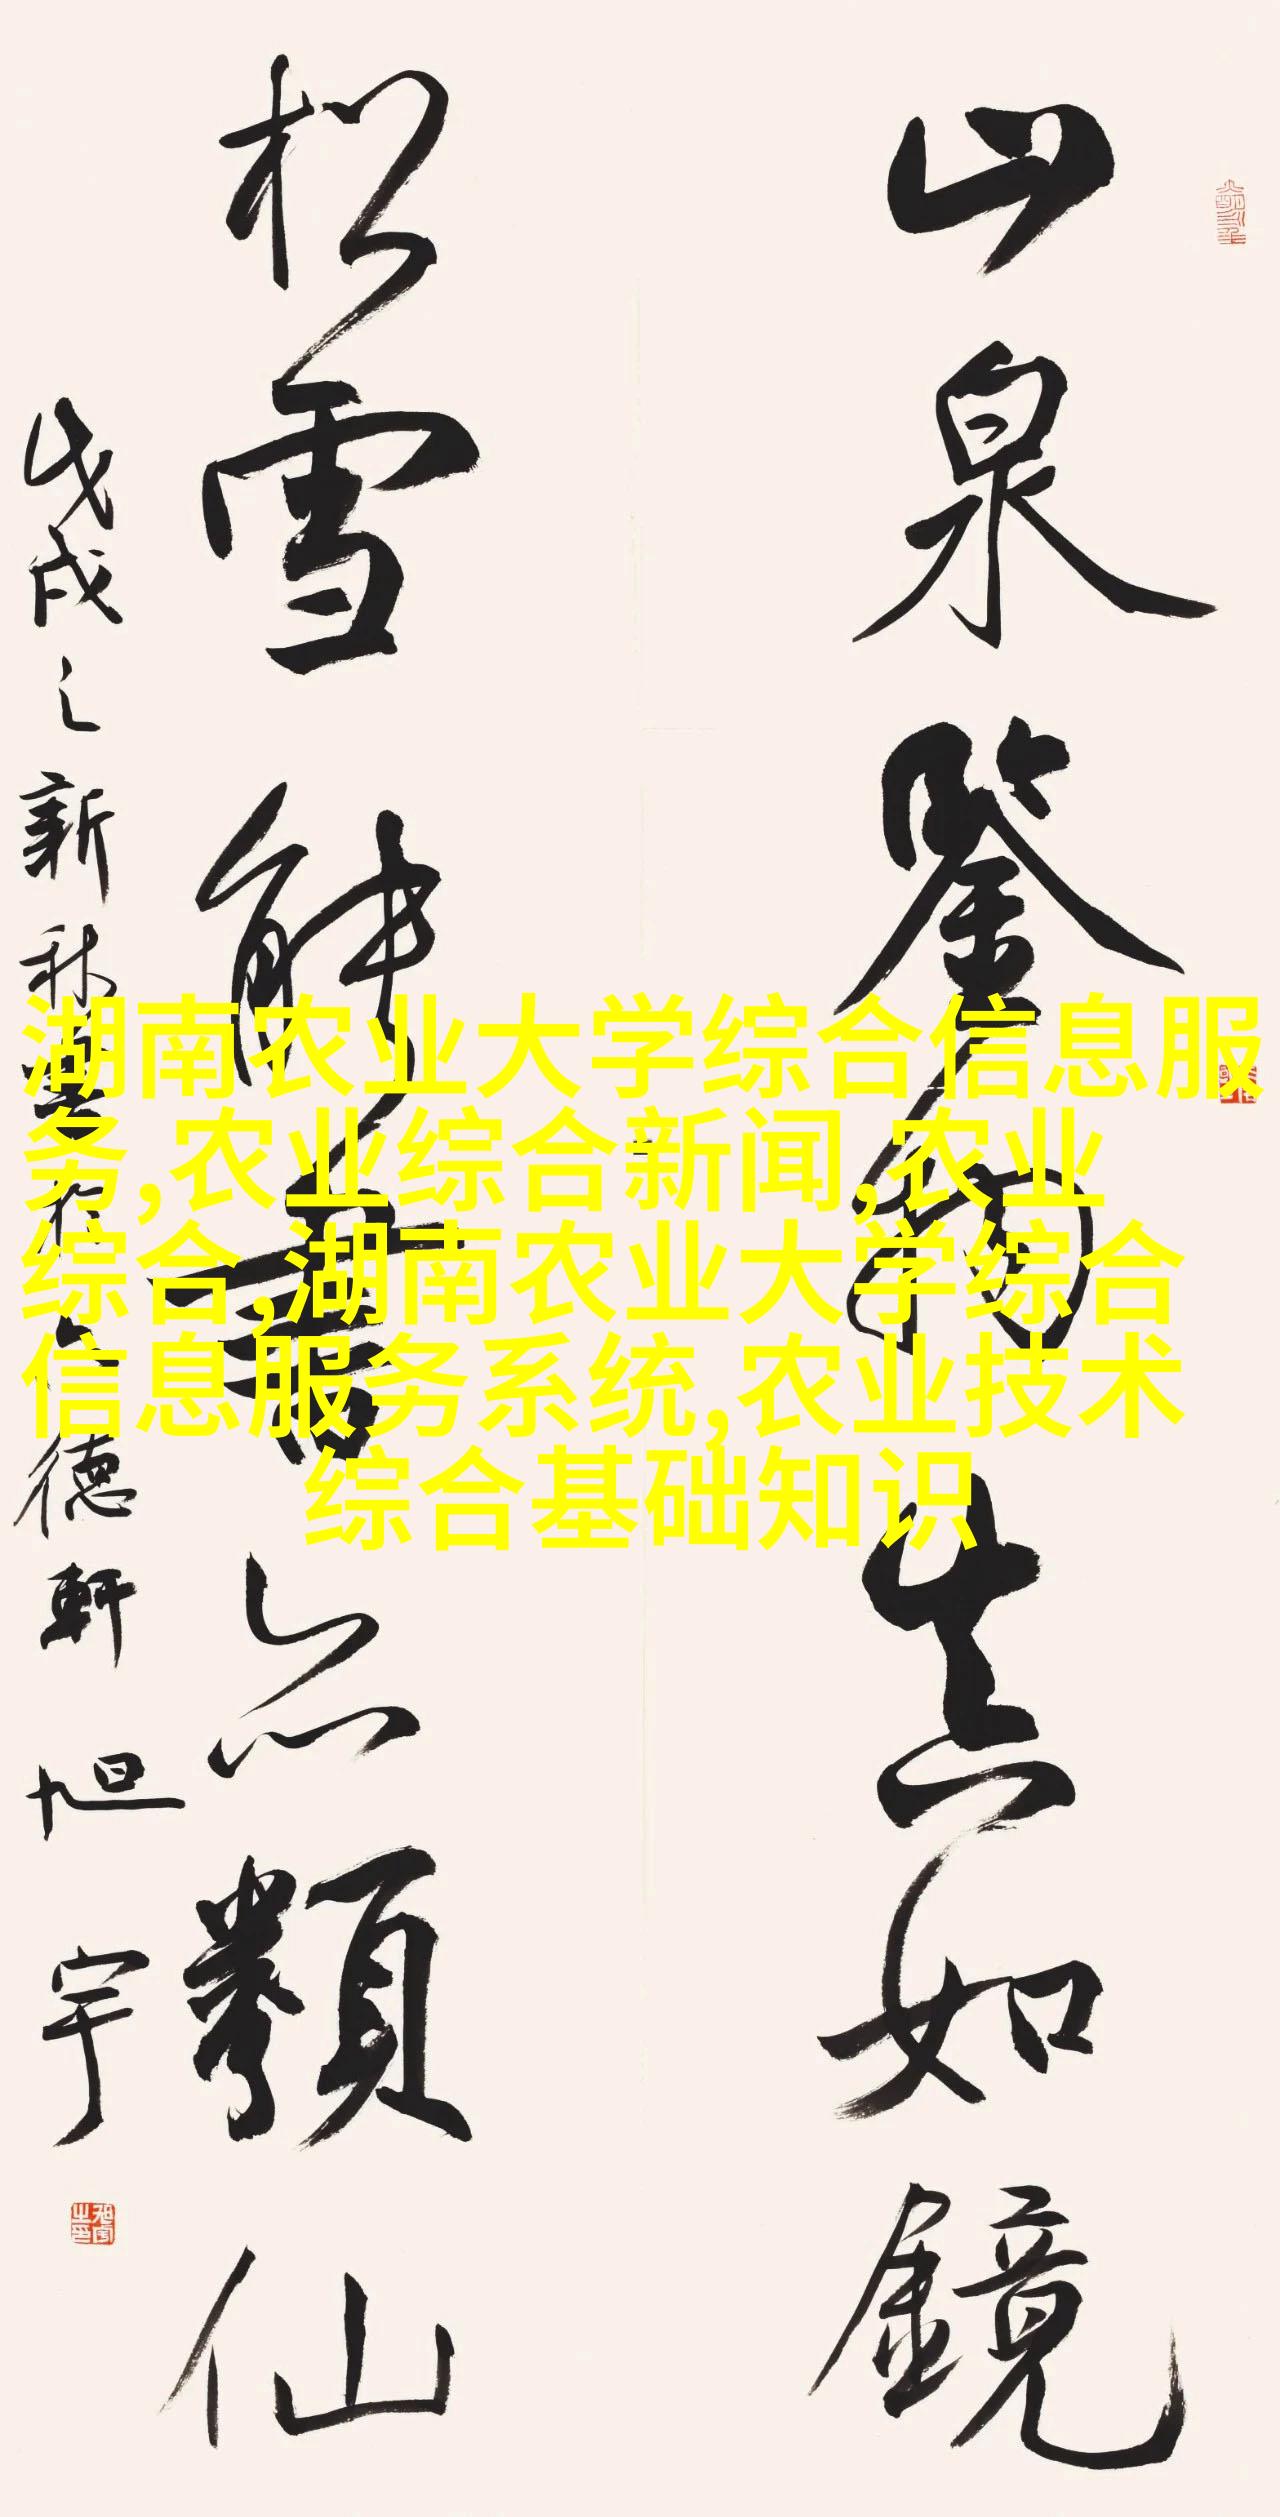 山泉鉴物真如镜
松雪能書亦類仙
戊戌之新秋
德軒
旭宇
湖南农业大学综合信息服
务,农业综合新闻,农业
综合,湖南农业大学综合
信息服务系统,农业技术
综合基础知识